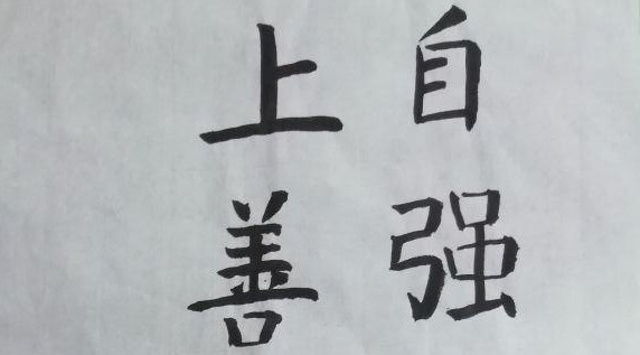 自强
上善